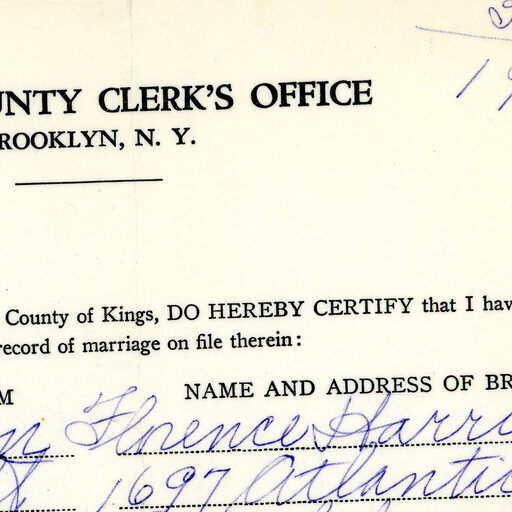 UNTY CLERK'S OFFICE
ROOKLYN, N. Y.
County of Kings, DO HEREBY CERTIFY that I hav
record of marriage on file therein:
M NAME AND ADDRESS OF BR
Florence Harr
1697 Atlantic